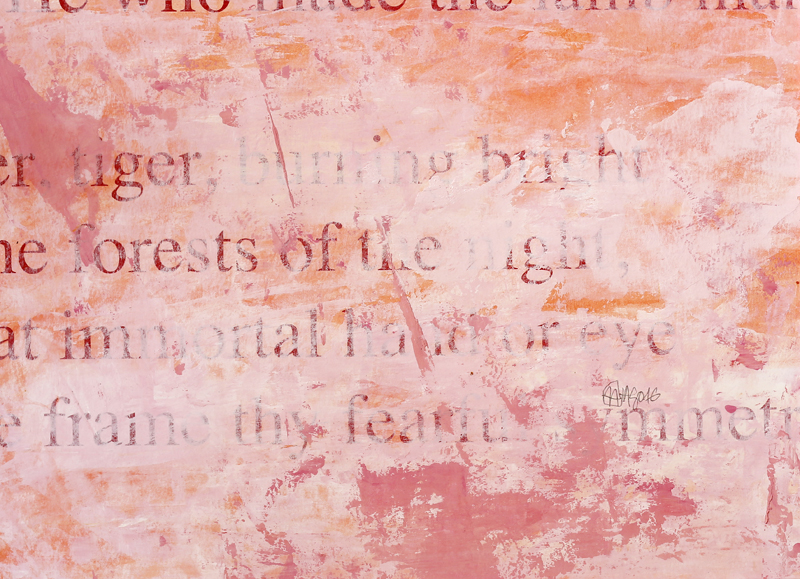 He who made the lamb mak
er, tiger, burning bright
he forests of the night,
at immortal hand or eye
e frame thy fearful symmetr